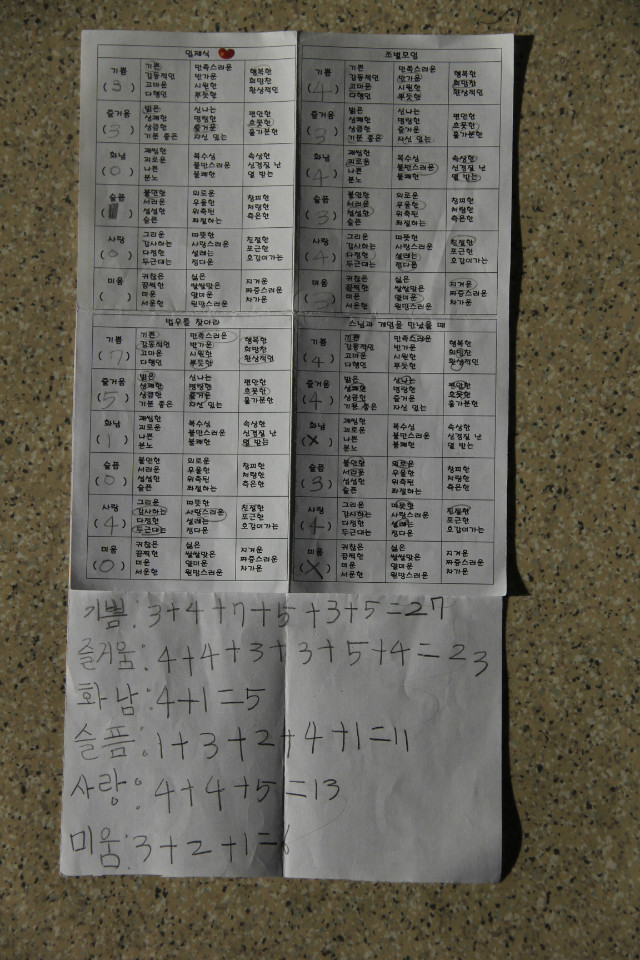 입재식
기쁨 기쁜 만족스러운 행복한
(3) 감동적인 반가운 희망찬
고마운 시원한 환상적인
다행인 뿌듯한
즐거움 밝은 신나는 편안한
(3) 상쾌한 명랑한 흐뭇한
상큼한 즐거운 홀가분한
기분 좋은 자신 있는
화남 괘씸한 복수심 속상한
(0) 괴로운 불만스러운 신경질 난
나쁜 불쾌한 열 받는
분노
슬픔 불안한 외로운 창피한
서러운 우울한 처량한
섭섭한 위축된 측은한
슬픈 좌절하는
사랑 그리운 따뜻한 친절한
(0) 감사하는 사랑스러운 포근한
다정한 설레는 호감이가는
두근대는 정다운
미움 귀찮은 싫은 지겨운
끔찍한 쌀쌀맞은 짜증스러운
미운 얄미운 차가운
서운한 원망스러운
조별모임
기쁨 기쁜 만족스러운 행복한
(4) 감동적인 반가운 희망찬
고마운 시원한 환상적인
다행인 뿌듯한
즐거움 밝은 신나는 편안한
(3) 상쾌한 명랑한 흐뭇한
상큼한 즐거운 홀가분한
기분 좋은 자신 있는
화남 괘씸한 복수심 속상한
(4) 괴로운 불만스러운 신경질 난
나쁜 불쾌한 열 받는
분노
슬픔 불안한 외로운 창피한
(3) 서러운 우울한 처량한
섭섭한 위축된 측은한
슬픈 좌절하는
사랑 그리운 따뜻한 친절한
(4) 감사하는 사랑스러운 포근한
다정한 설레는 호감이가는
두근대는 정다운
미움 귀찮은 싫은 지겨운
(3) 끔찍한 쌀쌀맞은 짜증스러운
미운 얄미운 차가운
서운한 원망스러운
법우를 찾아라
기쁨 기쁜 만족스러운 행복한
(7) 감동적인 반가운 희망찬
고마운 시원한 환상적인
다행인 뿌듯한
즐거움 밝은 신나는 편안한
(5) 상쾌한 명랑한 흐뭇한
상큼한 즐거운 홀가분한
기분 좋은 자신 있는
화남 괘씸한 복수심 속상한
(1) 괴로운 불만스러운 신경질 난
나쁜 불쾌한 열 받는
분노
슬픔 불안한 외로운 창피한
(0) 서러운 우울한 처량한
섭섭한 위축된 측은한
슬픈 좌절하는
사랑 그리운 따뜻한 친절한
(4) 감사하는 사랑스러운 포근한
다정한 설레는 호감이가는
두근대는 정다운
미움 귀찮은 싫은 지겨운
(0) 끔찍한 쌀쌀맞은 짜증스러운
미운 얄미운 차가운
서운한 원망스러운
스님과 계명을 만났을 때
기쁨 기쁜 만족스러운 행복한
(4) 감동적인 반가운 희망찬
고마운 시원한 환상적인
다행인 뿌듯한
즐거움 밝은 신나는 편안한
(4) 상쾌한 명랑한 흐뭇한
상큼한 즐거운 홀가분한
기분 좋은 자신 있는
화남 괘씸한 복수심 속상한
(X) 괴로운 불만스러운 신경질 난
나쁜 불쾌한 열 받는
분노
슬픔 불안한 외로운 창피한
(3) 서러운 우울한 처량한
섭섭한 위축된 측은한
슬픈 좌절하는
사랑 그리운 따뜻한 친절한
(4) 감사하는 사랑스러운 포근한
다정한 설레는 호감이가는
두근대는 정다운
미움 귀찮은 싫은 지겨운
(X) 끔찍한 쌀쌀맞은 짜증스러운
미운 얄미운 차가운
서운한 원망스러운
기쁨:3+4+7+5+3+5=27
즐거움:4+4+3+3+5+4=23
화남:4+1=5
슬픔:1+3+2+4+1=11
사랑:4+4+5=13
미움:3+2+1=6